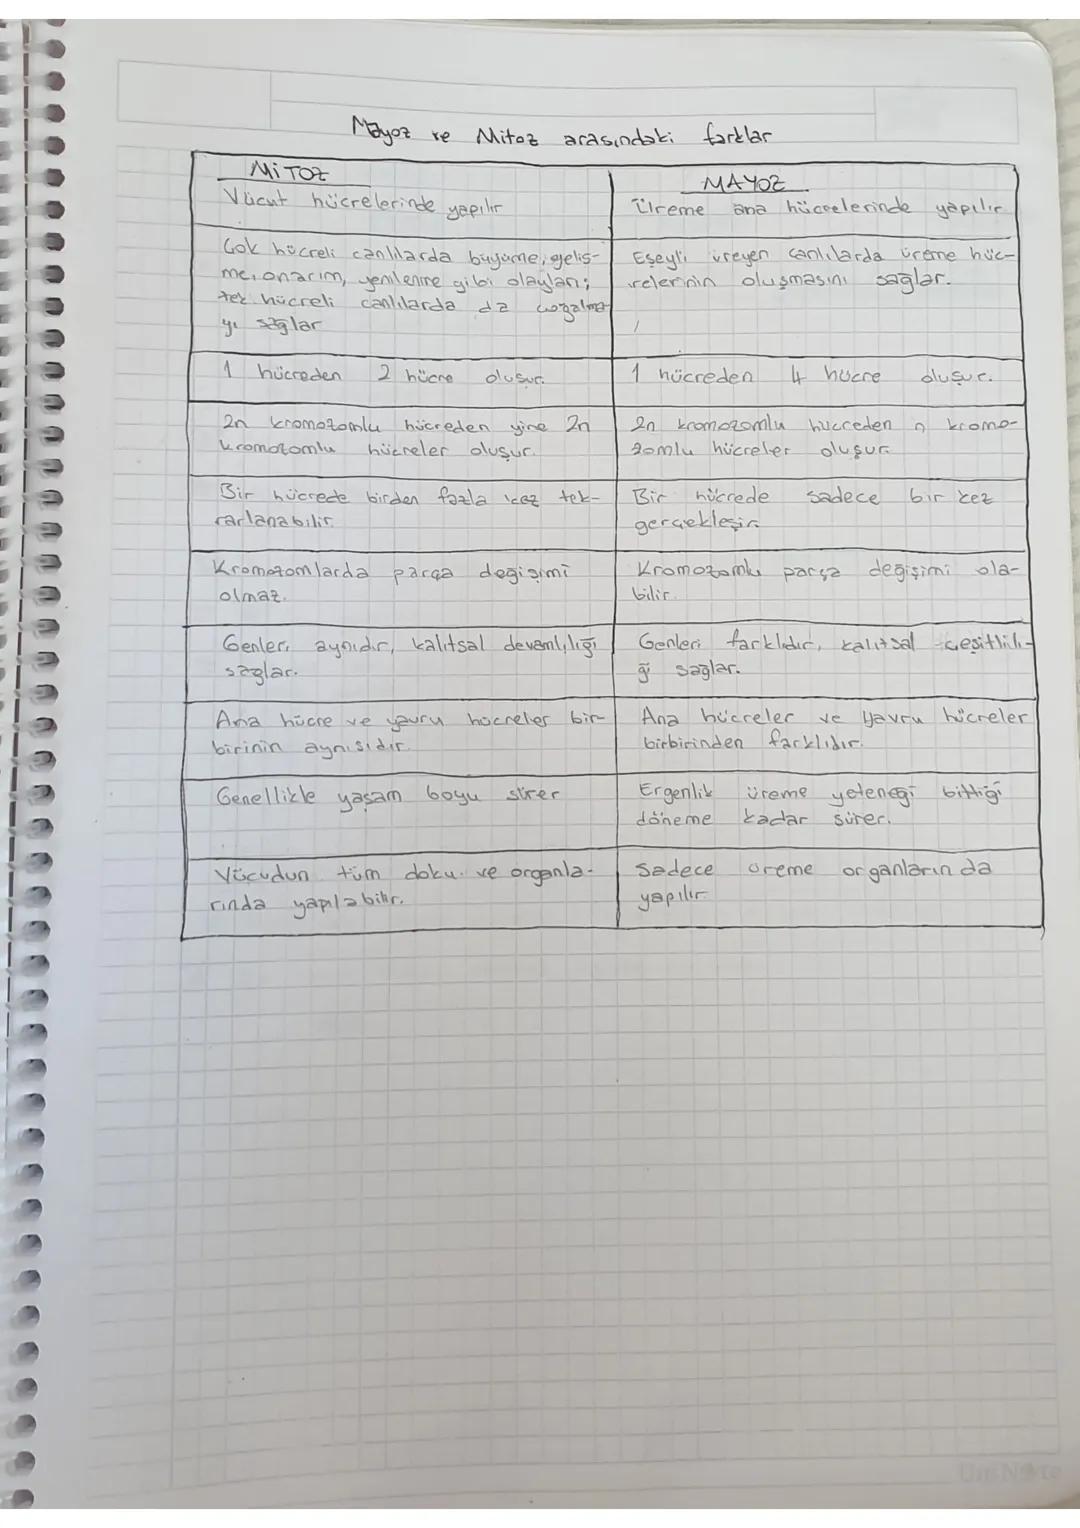 Mayoz ve Mitoz arasındaki farklar
MİTOZ
Vücut hücrelerinde yapılır
MAYOZ
Üreme ana hücrelerinde yapılır
Çok hücreli canlılarda büyüme, geliş-
me, onarım, yenilenme gibi olayları;
tek hücreli canlılarda da çoğalma-
yı sağlar
Eşeyli üreyen canlılarda üreme hüc-
relerinin oluşmasını sağlar.
1 hücreden 2 hücre oluşur.
1 hücreden 4 hücre oluşur.
2n kromozomlu hücreden yine 2n
kromozomlu hücreler oluşur.
2n kromozomlu hücreden n kromo-
zomlu hücreler oluşur.
Bir hücrede birden fazla kez tek-
rarlanabilir.
Bir hücrede sadece bir kez
gerçekleşir.
Kromozomlarda parça değişimi
olmaz.
Kromozomlu parça değişimi ola-
bilir.
Genleri aynıdır, kalıtsal devamlılığı
sağlar.
Genleri farklıdır, kalıtsal çeşitlili-
ği sağlar.
Ana hücre ve yavru hücreler bir-
birinin aynısıdır.
Ana hücreler ve Yavru hücreler
birbirinden farklıdır.
Genellikle yaşam boyu sürer
Ergenlik üreme yeteneği bittiği
döneme kadar sürer.
Vücudun tüm doku ve organla-
rında yapılabilir.
Sadece üreme organlarında
yapılır.